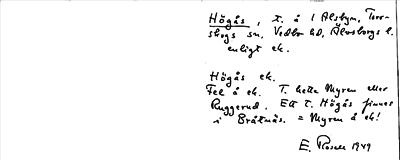 Högås, t. å 1 Alsbyn, Torr-
skogs sn, Vedbo hd, Älvsborgs l.
enligt ek.
Högås ek.
Fel å ek. T. hette Myren eller
Ruggerud. Ett t. Högås finnes
i Bråtnäs. = Myren å ek!
E. Rosell 1949